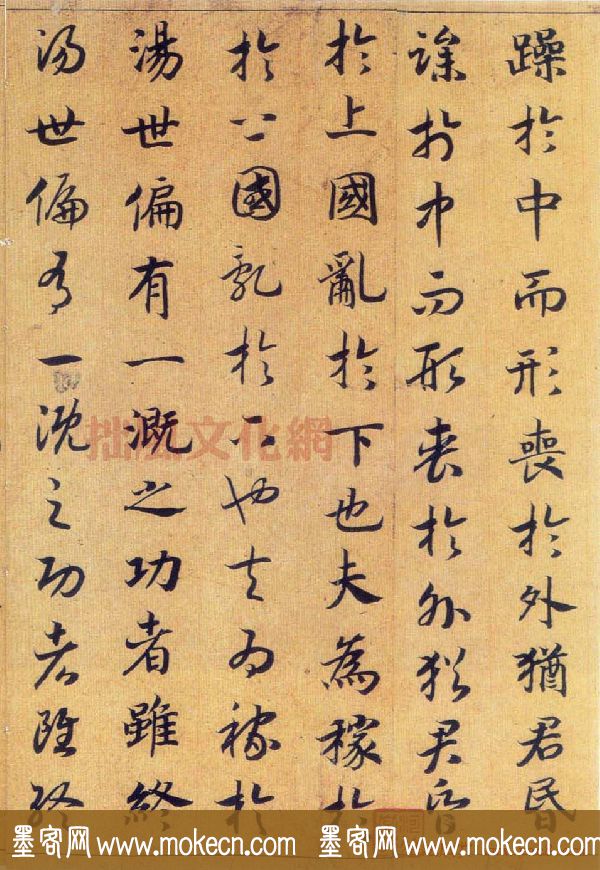 躁於中而形喪於外猶君昏
躁於中而形喪於外猶君昏
於上國亂於下也夫為稼於
於上國亂於下也夫為稼於
湯世偏有一溉之功者雖終
湯世偏有一溉之功者雖終
拙風文化網
墨客网 www.mokecn.com 墨客网 www.mokecn.com